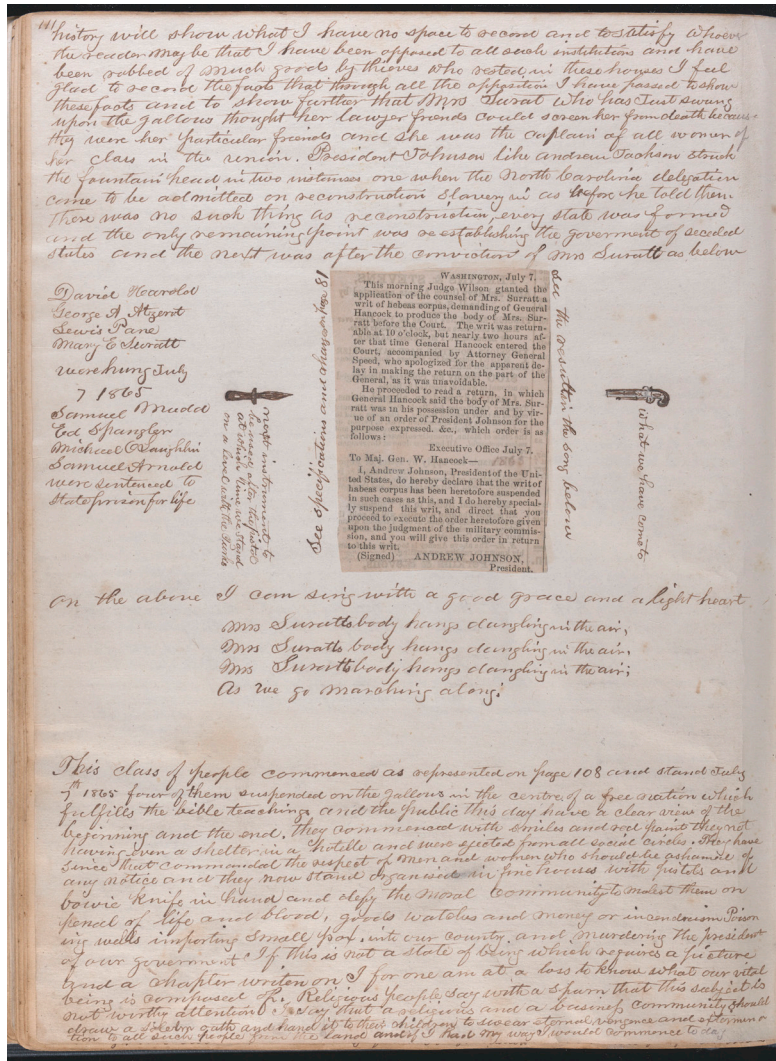 111
history will show what I have no space to record and to satisfy whoever
the reader may be that I have been opposed to all such institutions and have
been robbed of much goods by thieves who rested in these houses I feel
glad to record the facts that through all the opposition I have passed to show
these facts and to show further that Mrs Surat who has Just swung
upon the gallows thought her lawyer friends could screen her from death because
they were her particular friends and she was the captain of all women of
her class in the union. President Johnson like andrew Jackson struck
the fountain head in two instances one when the North Carolina delegation
came to be admitted on reconstruction Slavery in as before he told them
There was no such thing as reconstruction, every state was formed
and the only remaining point was reestablishing the goverment of seceded
states and the next was after the conviction of Mrs Suratt as below
David Harold
George A Atzert
Lewis Pane
Mary E Suratt
were hung July
7 1865
Samuel Mudd
Ed Spangler
Michael OLaughlin
Samuel Arnold
were sentenced to
State prison for life
next instrument to
be used after the pistol
at which time we stand
on a level with the Turks
See specifications and charges on page 81
WASHINGTON, July 7.
This morning Judge Wilson granted the
application of the counsel of Mrs. Surratt a
writ of hebeas corpus, demanding of General
Hancock to produce the body of Mrs. Sur-
ratt before the Court. The writ was return-
able at 10 o'clock, but nearly two hours af-
ter that time General Hancock entered the
Court, accompanied by Attorney General
Speed, who apologized for the apparent de-
lay in making the return on the part of the
General, as it was unavoidable.
He proceeded to read a return, in which
General Hancock said the body of Mrs. Sur-
ratt was in his possession under and by vir-
tue of an order of President Johnson for the
purpose expressed. &c., which order is as
follows:
Executive Office July 7.
To Maj. Gen. W. Hancock—
I, Andrew Johnson, President of the Uni-
ted States, do hereby declare that the writ of
habeas corpus has been heretofore suspended
in such cases as this, and I do hereby special-
ly suspend this writ, and direct that you
proceed to execute the order heretofore given
upon the judgment of the military commis-
sion, and you will give this order in return
to this writ.
(Signed) ANDREW JOHNSON,
President.
See the result in the song below
what we have come to
on the above I can sing with a good grace and a light heart
Mrs Suratts body hangs dangling in the air,
Mrs Suratts body hangs dangling in the air,
Mrs Suratts body hangs dangling in the air;
As we go marching along.
This class of people commenced as represented on page 108 and stand July
7th 1865 four of them suspended on the gallows in the centre of a free nation which
fulfills the bible teaching and the public this day have a clear view of the
beginning and the end. they commenced with smiles and red paint they not
having even a shelter in a hotelle and were ejected from all social circles. They have
since that commanded the respect of men and women who should be ashamed of
any notice and they now stand organised in fine houses with pistols and
bowie knife in hand and defy the moral community to molest them on
penal of life and blood, goods watches and money or incendiarism Poison
ing wells importing small pox, into our county and murdering the president
of our goverment If this is not a state of being which requires a picture
and a chapter writen on I for one am at a loss to know what our vital
being is composed of. Religious people say with a spurn that this subject is
not worthy attention I say that a religious and a business community should
draw a solem oath and hand it to their children to swear eternal vengence and extermina
tion to all such people from the land and if I had my way I would commence to day